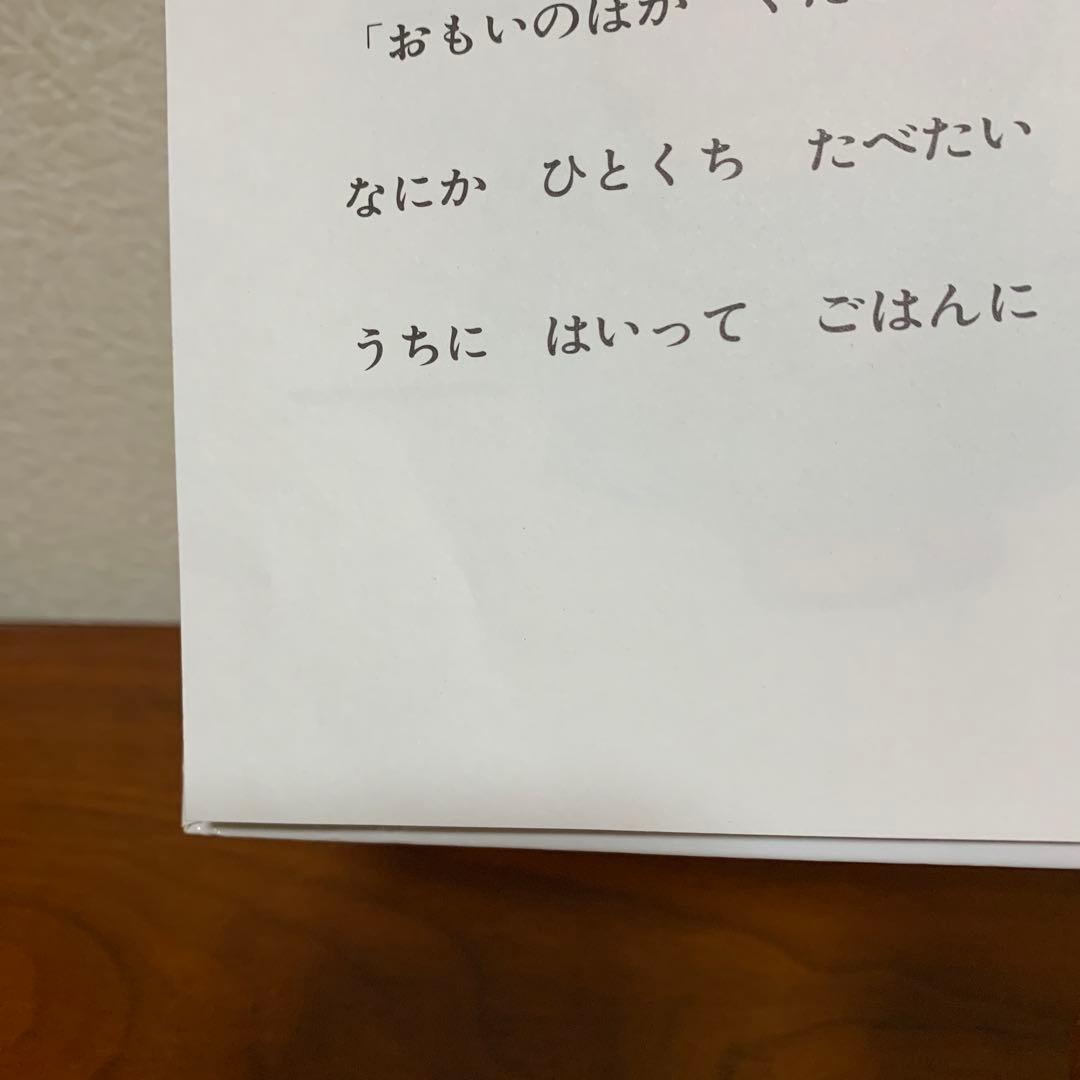 「おもいのはが
なにか　ひとくち　たべたい
うちに　はいって　ごはんに